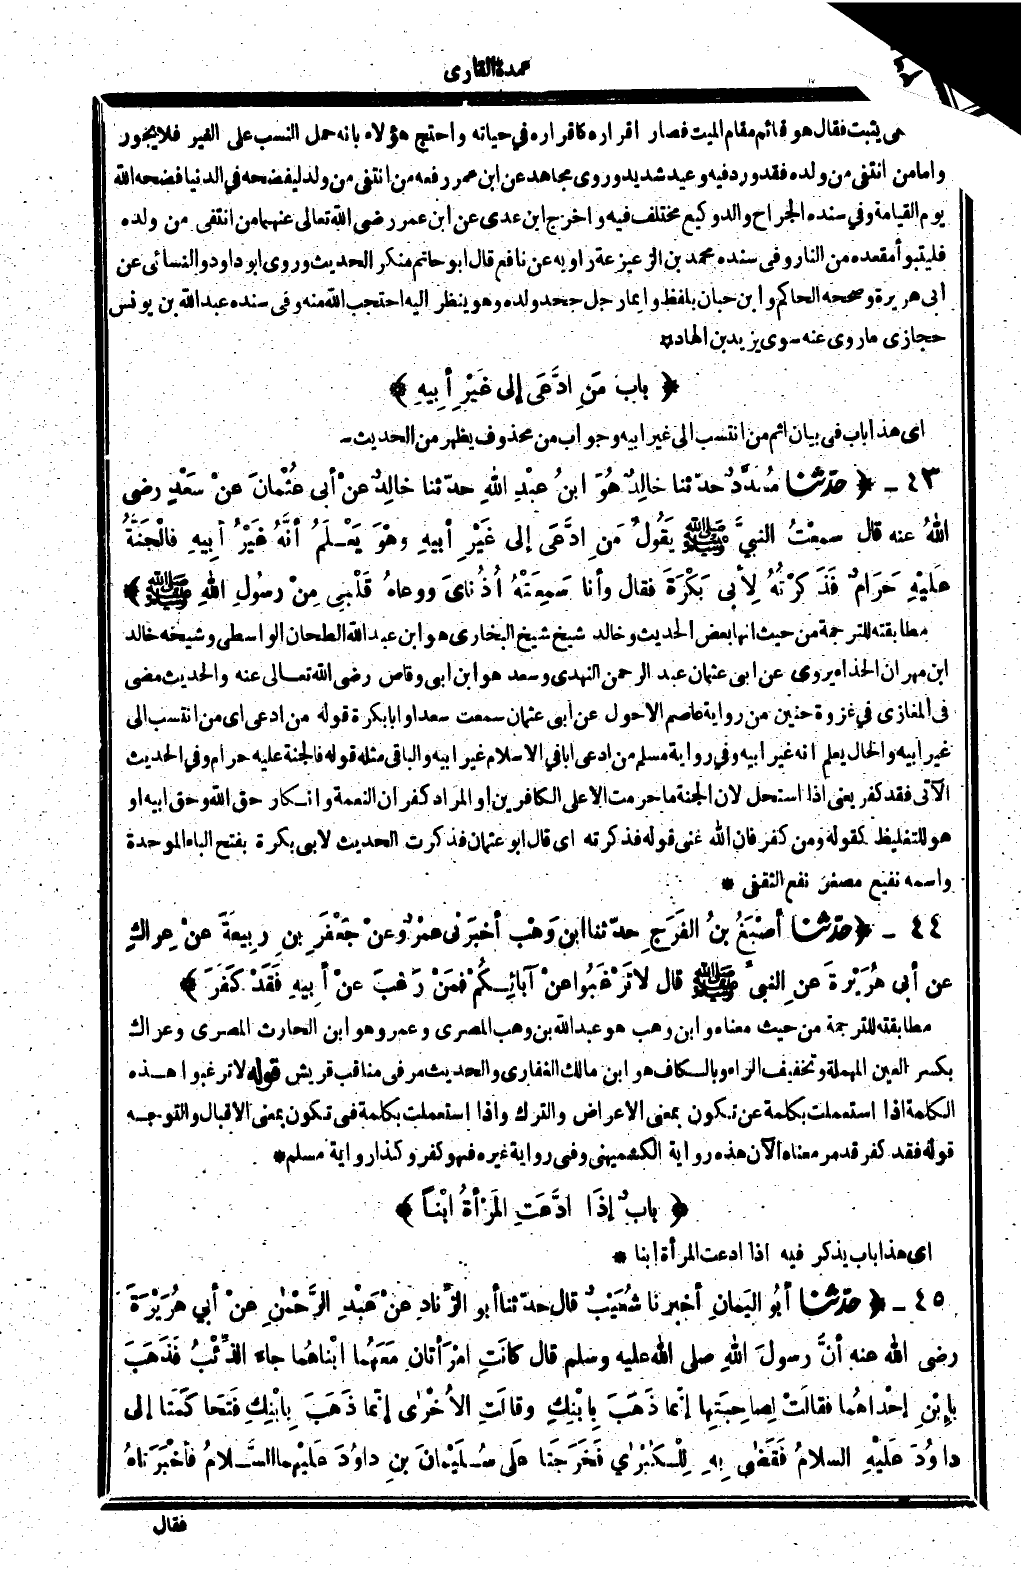 عمدة القارى
يثبت فقال هو قائم مقام الميت فصار اقراره كاقراره في حياته واحتج هؤلاء بانه حمل النسب على الغير فلا يجوز
واما من انتفى من ولده فقد ورد فيه وعيد شديد وروى مجاهد عن ابن عمر رفعه من انتفى من ولد ليفضحه في الدنيا فضحه الله
يوم القيامة وفي سنده الجراح والد وكيع مختلف فيه واخرج ابن عدى عن ابن عمر رضى الله تعالى عنهما من انتفى من ولده
فليتبوأ مقعده من النار وفى سنده محمد بن الزعيزعة راويه عن نافع قال ابو حاتم منكر الحديث وروى ابو داود والنسائى عن
ابى هريرة وصححه الحاكم وابن حبان بلفظ وايما رجل جحد ولده وهو ينظر اليه احتجب الله منه وفى سنده عبد الله بن يونس
حجازى ما روى عنه سوى يزيد بن الهاد *
﴿ بابُ مَنِ ادَّعَى إلى غَيْرِ أبِيهِ ﴾
اى هذا باب فى بيان اثم من انتسب الى غير ابيه وجواب من محذوف يظهر من الحديث-
٤٣ - ﴿ حدّثنا مُسَدَّدٌ حدّثنا خالِدٌ هُوَ ابنُ عبْدِ اللهِ حدّثنا خالِدٌ عنْ أبى عُثْمانَ عنْ سَعْدٍ رضى
اللهُ عنه قال سمِعْتُ النبيَّ ﷺ يَقُولُ مَنِ ادَّعَى إلى غَيْرِ أبيهِ وهْوَ يَعْلَمُ أنَّهُ غيْرُ أبِيهِ فالْجَنَّةُ
علَيْهِ حَرَامٌ فَذَكَرْتُهُ لِأبى بَكْرَةَ فقال وأنا سَمِعَتْهُ أُذُنايَ ووعاهُ قَلْبى مِنْ رسُولِ اللهِ ﷺ ﴾
مطابقته للترجمة من حيث انها بعض الحديث وخالد شيخ شيخ البخارى هو ابن عبد الله الطحان الواسطى وشيخه خالد
ابن مهران الحذاء يروى عن ابى عثمان عبد الرحمن النهدى وسعد هو ابن ابى وقاص رضى الله تعالى عنه والحديث مضى
فى المغازى في غزوة حنين من رواية عاصم الاحول عن ابى عثمان سمعت سعدا وابا بكرة قوله من ادعى اى من انتسب الى
غير ابيه والحال يعلم انه غير ابيه وفي رواية مسلم من ادعى ابا في الاسلام غير ابيه والباقى مثله قوله فالجنة عليه حرام وفي الحديث
الآتى فقد كفر يعنى اذا استحل لان الجنة ما حرمت الا على الكافرين او المراد كفران النعمة وانكار حق الله وحق ابيه او
هو للتغليظ كقوله ومن كفر فان الله غنى قوله فذكرته اى قال ابو عثمان فذكرت الحديث لابى بكرة بفتح الباء الموحدة
واسمه نفيع مصغر نفع الثقفى *
٤٤ - ﴿ حدّثنا أصْبَغُ بنُ الفَرَجِ حدّثنا ابن وَهْب أخبَرَنى عمْرٌو عنْ جَعْفَرِ بنِ ربِيعةَ عنْ عِراكٍ
عن أبى هُرَيْرةَ عنِ النبىِّ ﷺ قال لا تَرْغَبُوا عنْ آبائِكُمْ فمَنْ رَغِبَ عنْ أبِيهِ فَقَدْ كَفَرَ ﴾
مطابقته للترجمة من حيث معناه وابن وهب هو عبد الله بن وهب المصرى وعمرو هو ابن الحارث المصرى وعراك
بكسر العين المهملة وتخفيف الراء وبالكاف هو ابن مالك الغفارى والحديث مر فى مناقب قريش قوله لا ترغبوا هذه
الكلمة اذا استعملت بكلمة عن تكون بمعنى الاعراض والترك واذا استعملت بكلمة فى تكون بمعنى الاقبال والتوجه
قوله فقد كفر قد مر معناه الآن هذه رواية الكشميهنى وفى رواية غيره فهو كفر وكذا رواية مسلم *
﴿ بابٌ إذَا ادَّعَتِ المَرْأةُ ابْناً ﴾
اى هذا باب يذكر فيه اذا ادعت المرأة ابنا *
٤٥ - ﴿ حدّثنا أبُو اليَمانِ أخبرنا شُعَيْبٌ قال حدّثنا أبو الزّنادِ عنْ عبْدِ الرَّحْمٰنِ عنْ أبي هُرَيْرَةَ
رضى الله عنه أنَّ رسولَ اللهِ صلى الله عليه وسلم قال كانَتِ امْرَأتانِ مَعَهُما ابْناهُما جاءَ الذِّئْبُ فَذَهَبَ
بابْنِ إحْداهُما فقالَتْ لِصاحِبَتِها إنَّما ذَهَبَ بابْنِكِ وقالَتِ الأُخْرَى إنَّما ذَهَبَ بابْنِكِ فَتَحا كَمَتا إلى
داوُدَ عَلَيْهِ السلامُ فَقَضَى بِهِ لِلْكُبْرٰى فَخَرَجَتا علَى سُلَيْمانَ بنِ داوُدَ عَلَيْهِما السَّلامُ فأخْبَرَتاهُ
فقال